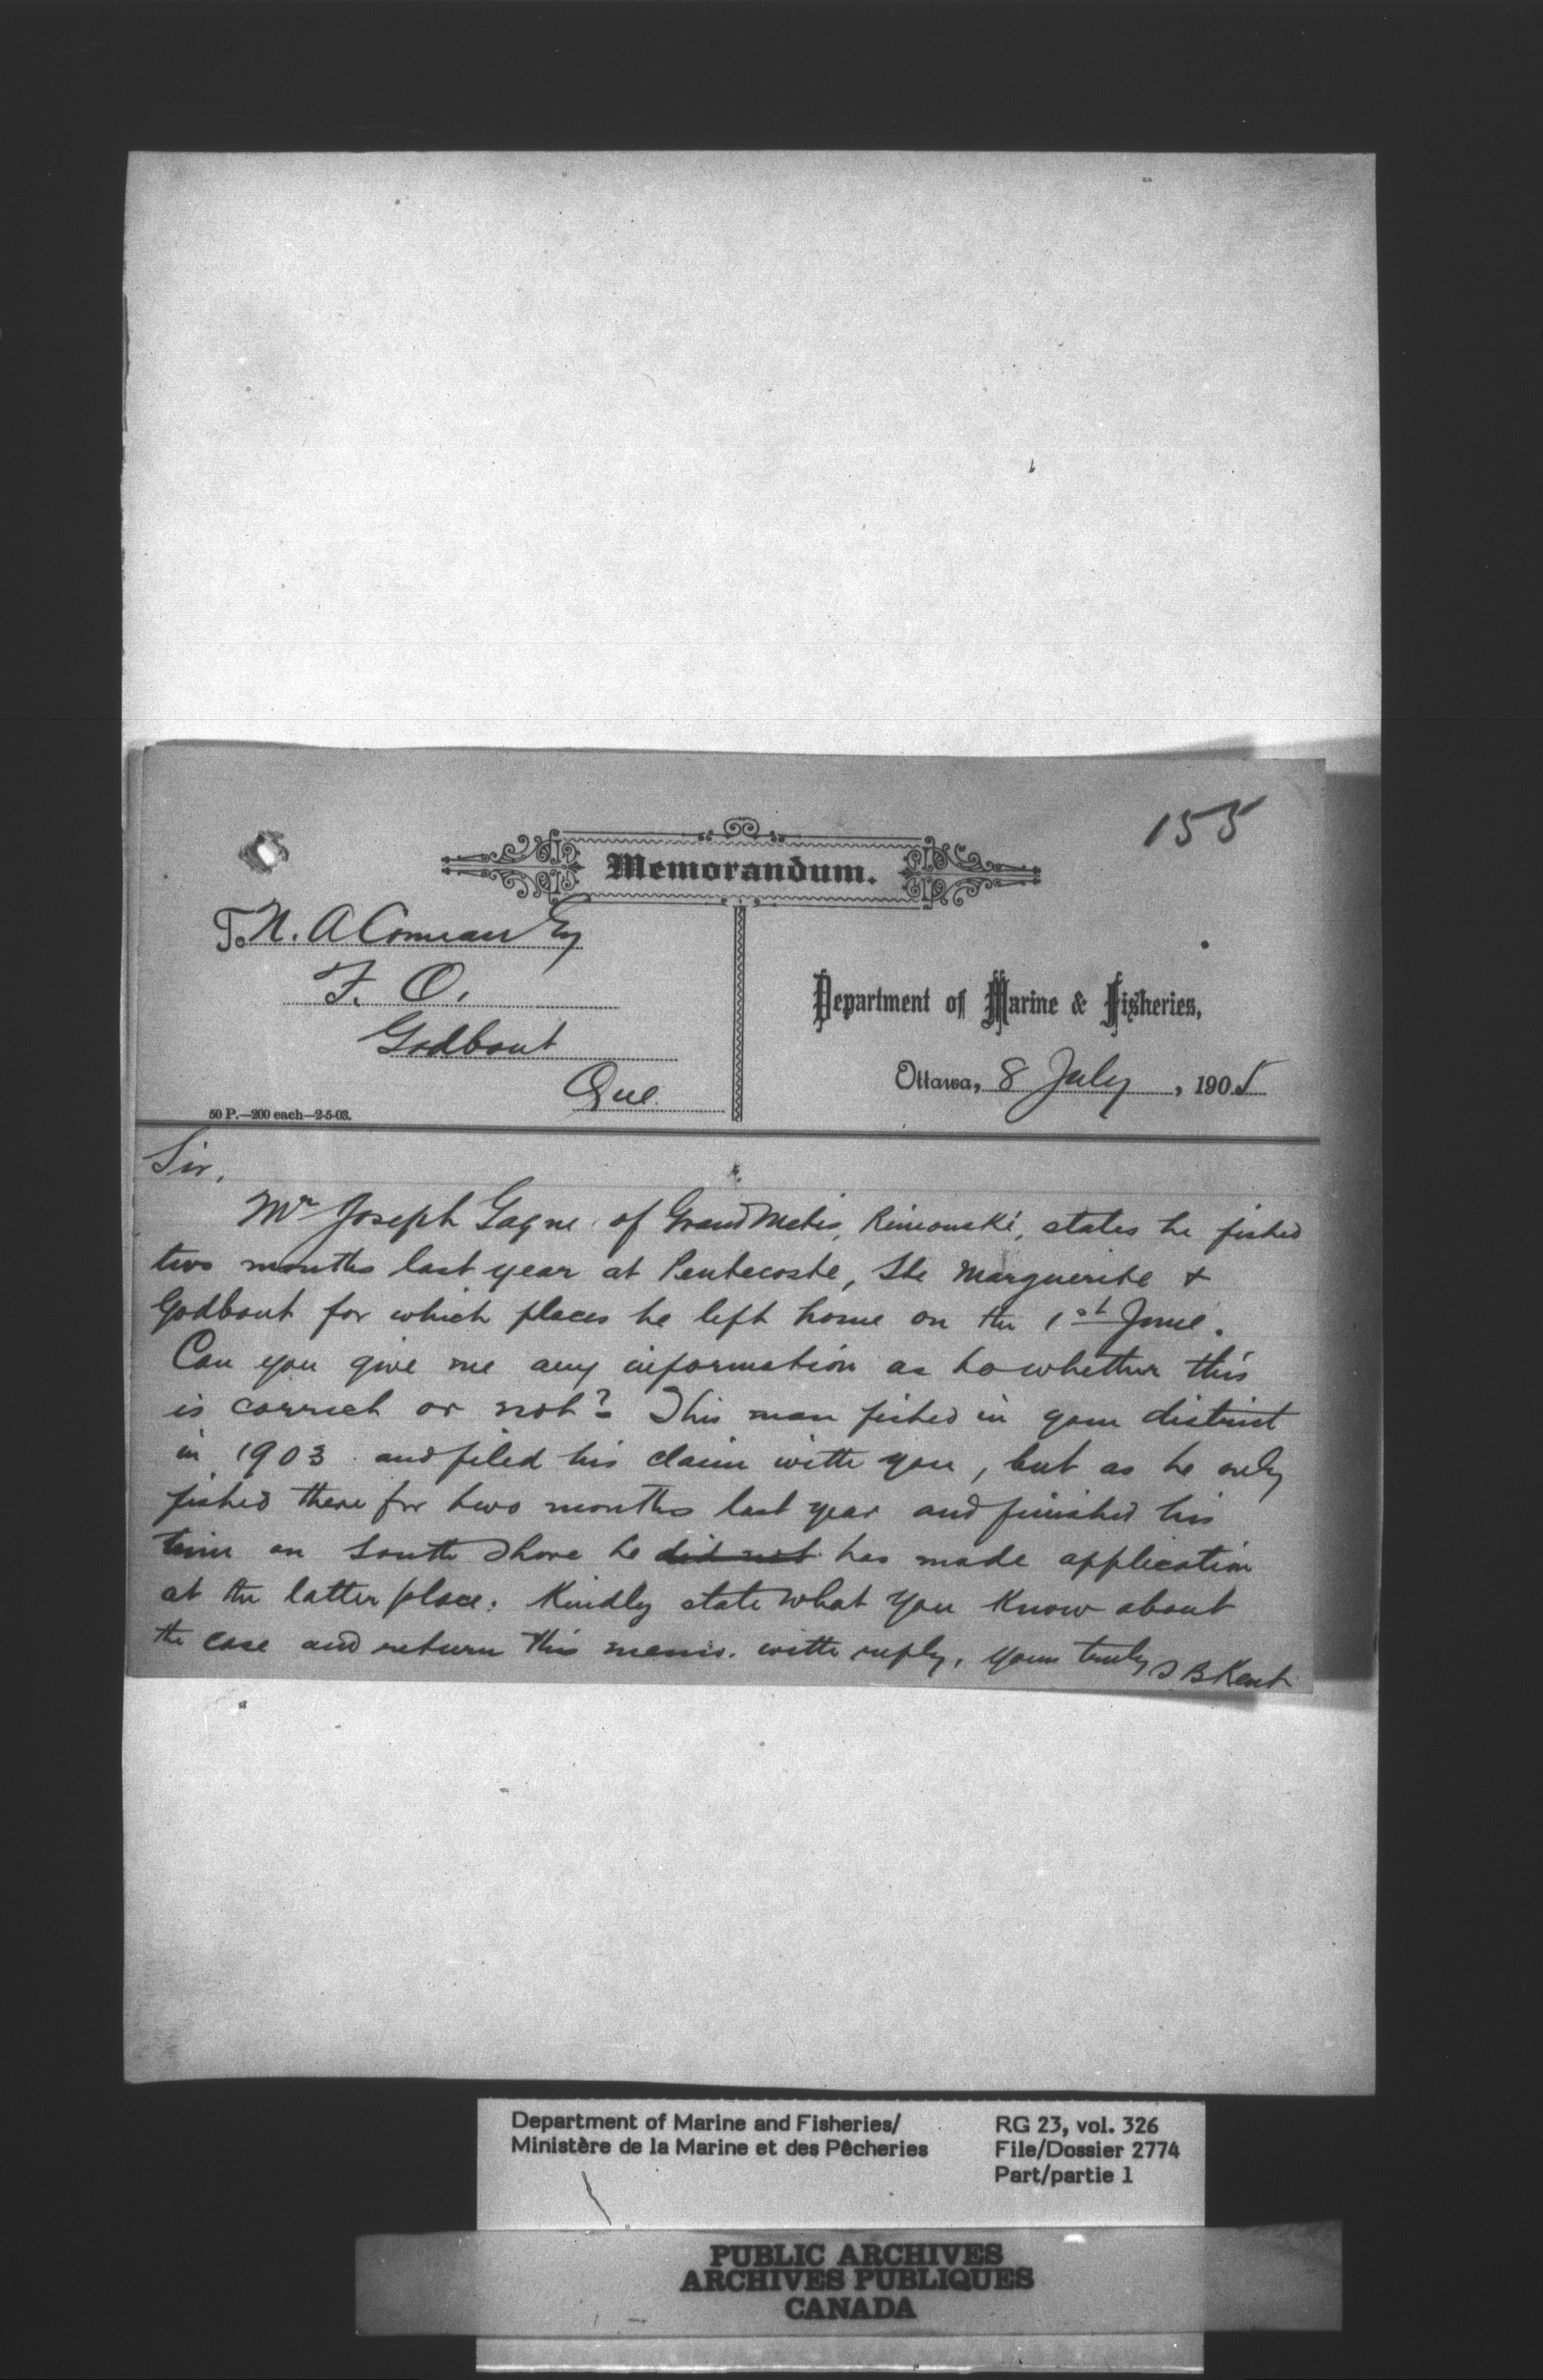 155
Memorandum.
To N. A Comeau Esq
F. O.
Godbout
Que.
Department of Marine & Fisheries,
Ottawa, 8 July, 1905
50 P.—200 each—2-5-03.
Sir,
Mr Joseph Gagne of Grand Metis, Rimouski, states he fished
two months last year at Pentecoste, Ste Marguerite &
Godbout for which places he left home on the 1st June.
Can you give me any information as to whether this
is correct or not? This man fished in your district
in 1903 and filed his claim with you, but as he only
fished there for two months last year and finished his
time on South Shore he did not has made application
at the latter place. Kindly state what you know about
the case and return this memo. with reply, Yours truly J B Kent
Department of Marine and Fisheries/
Ministère de la Marine et des Pêcheries
RG 23, vol. 326
File/Dossier 2774
Part/partie 1
PUBLIC ARCHIVES
ARCHIVES PUBLIQUES
CANADA